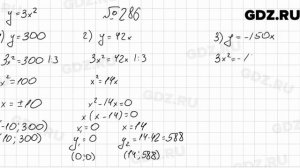 GDZ.RU
№286
y=3x²
1) y=300 2) y=42x 3) y=-150x
3x²=300 1:3 3x²=42x 1:3 3x²=-1
x²=100 x²=14x
x=±10 x²-14x=0
x(x-14)=0
(-10;300) x₁=0 x=14
(10;300) y₁=0 y₂=14·42=588
(0;0) (14;588)
GDZ.RU